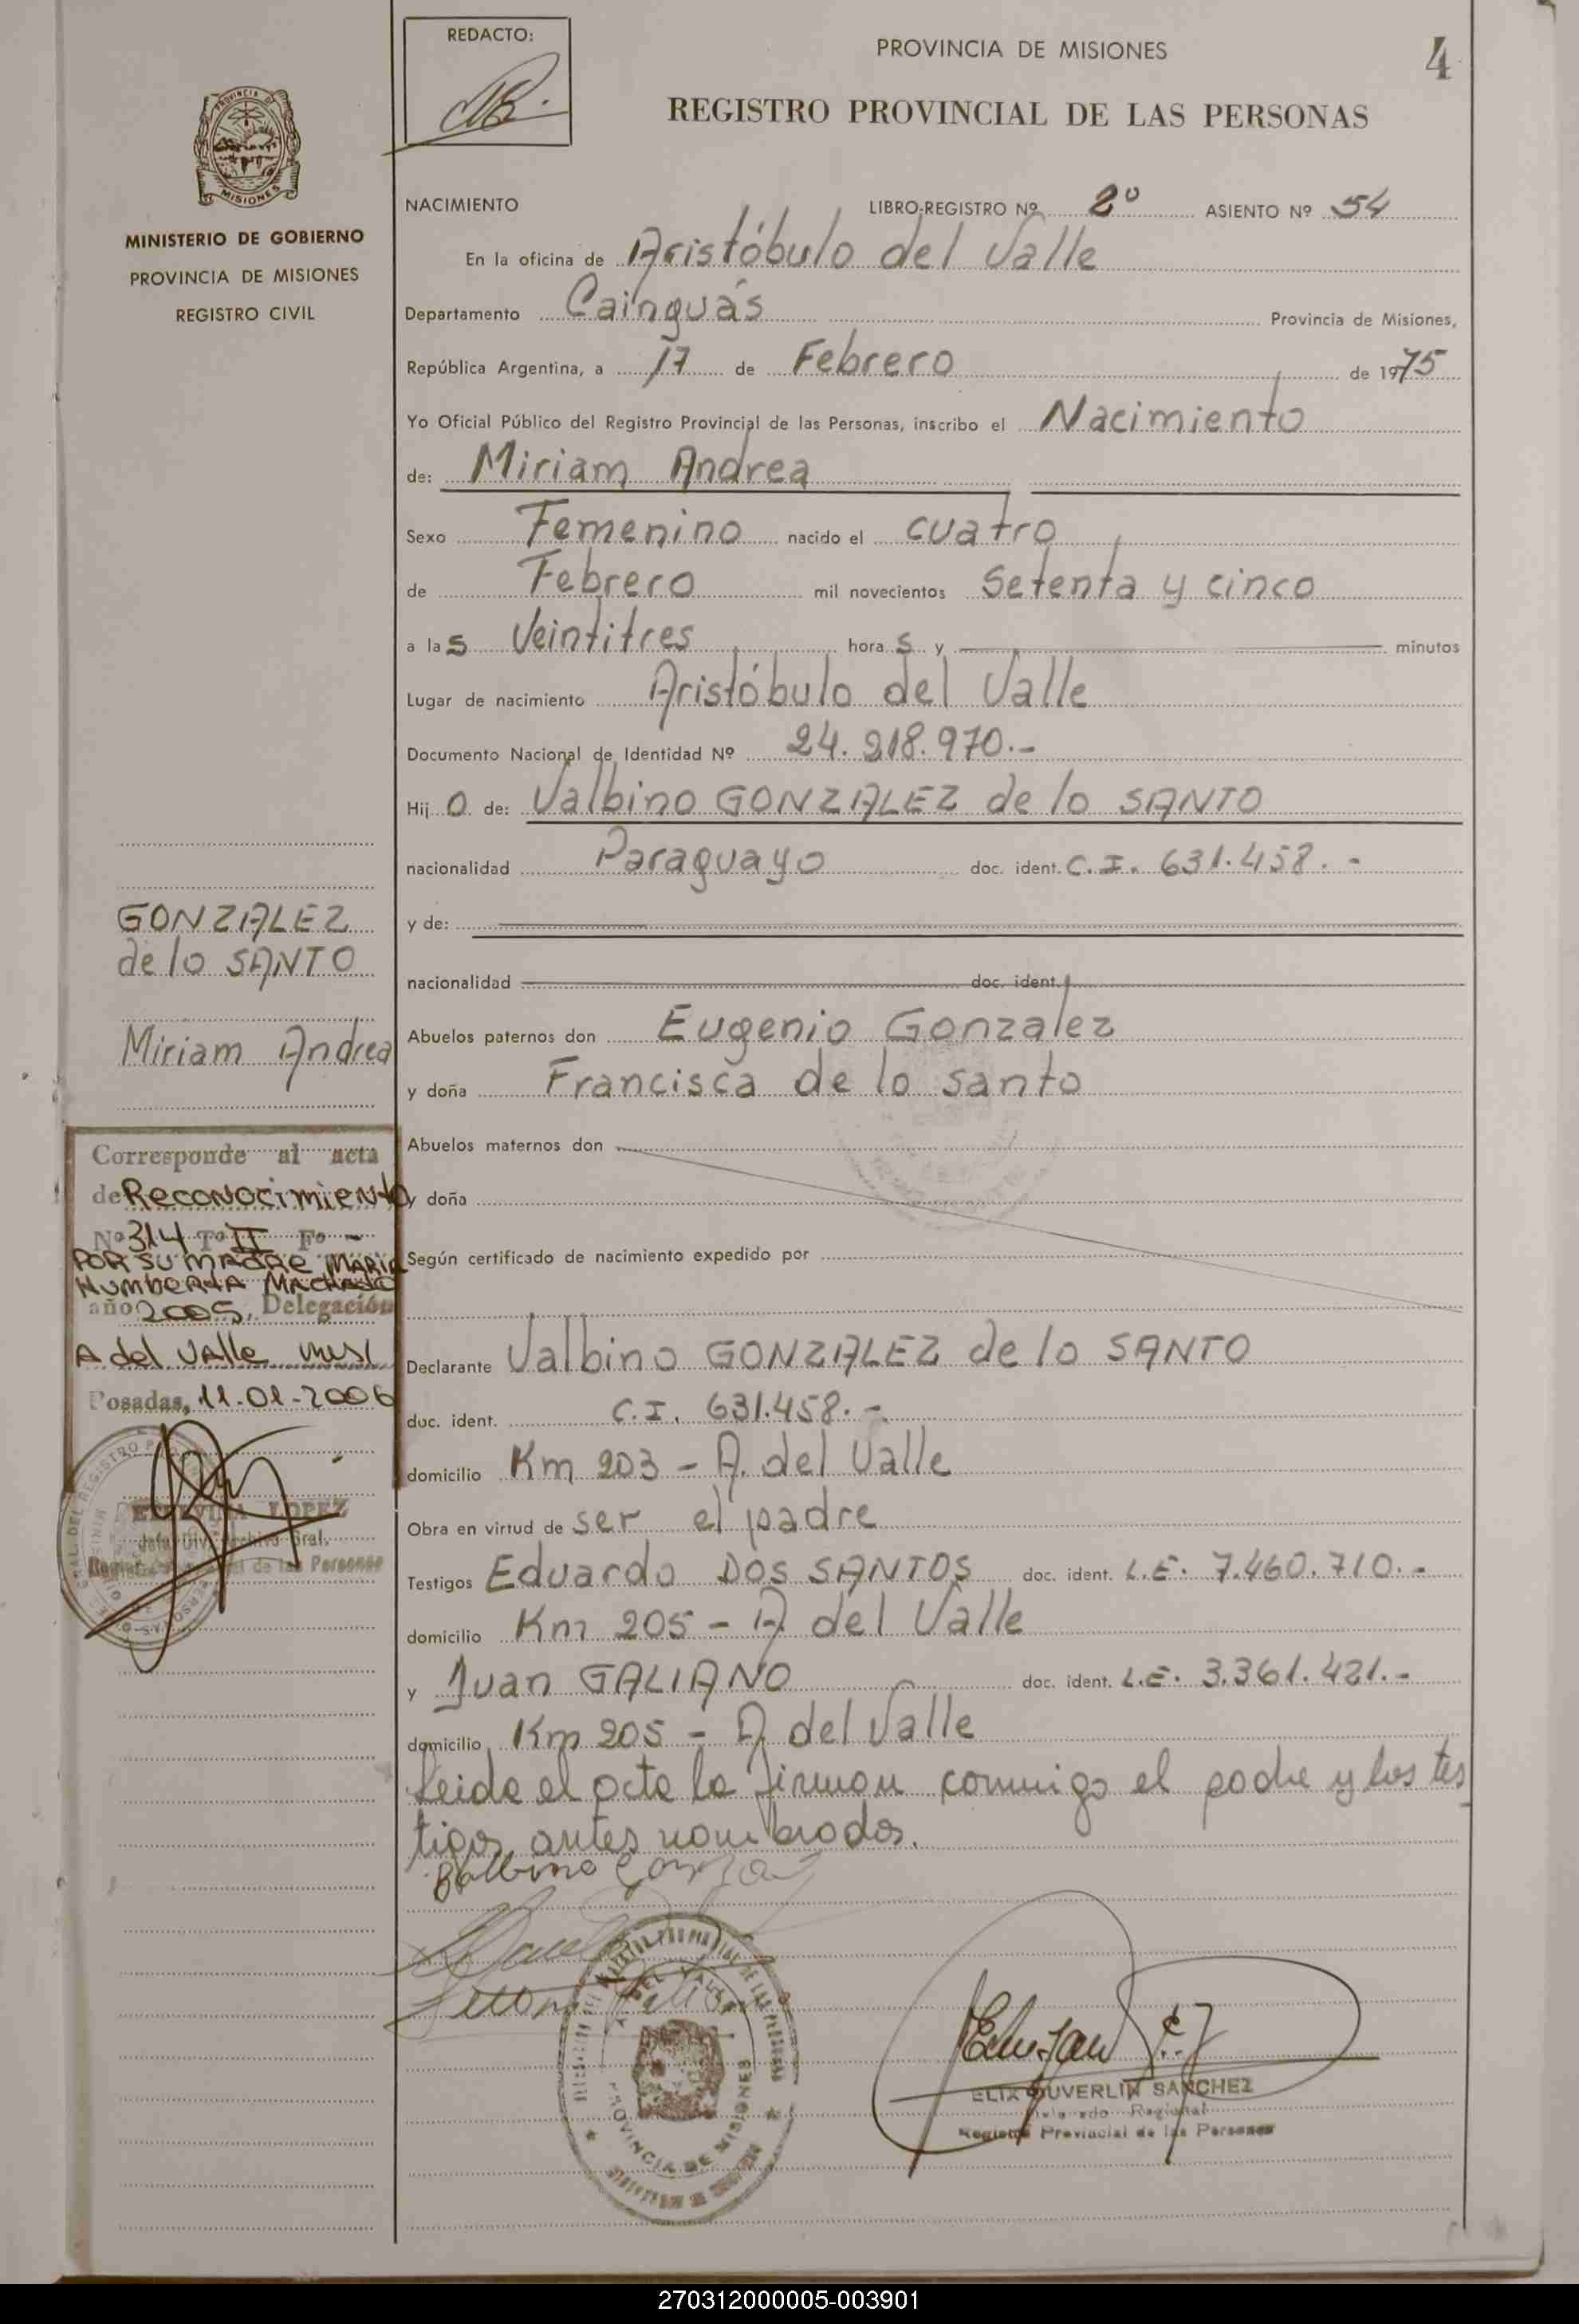 REDACTO:
PROVINCIA DE MISIONES
4
REGISTRO PROVINCIAL DE LAS PERSONAS
PROVINCIA DE
MISIONES
MINISTERIO DE GOBIERNO
PROVINCIA DE MISIONES
REGISTRO CIVIL
NACIMIENTO LIBRO-REGISTRO Nº 2º ASIENTO Nº 54
En la oficina de Aristóbulo del Valle
Departamento Cainguás Provincia de Misiones,
República Argentina, a 17 de Febrero de 1975
Yo Oficial Público del Registro Provincial de las Personas, inscribo el Nacimiento
de: Miriam Andrea
Sexo Femenino nacido el cuatro
de Febrero mil novecientos Setenta y cinco
a las Veintitres horas y minutos
Lugar de nacimiento Aristóbulo del Valle
Documento Nacional de Identidad Nº 24.218.970.-
Hijo de: Valbino GONZALEZ de lo SANTO
nacionalidad Paraguayo doc. ident. C.I. 631.458.-
y de:
nacionalidad doc. ident.
Abuelos paternos don Eugenio Gonzalez
y doña Francisca de lo santo
Abuelos maternos don
y doña
Según certificado de nacimiento expedido por
Declarante Valbino GONZALEZ de lo SANTO
doc. ident. C.I. 631.458.-
domicilio Km 203 - A. del Valle
Obra en virtud de ser el padre
Testigos Eduardo DOS SANTOS doc. ident. L.E. 7.460.710.-
domicilio Km 205 - A del Valle
y Juan GALIANO doc. ident. L.E. 3.361.421.-
domicilio Km 205 - A del Valle
Leida el acta la firman conmigo el padre y los tes
tigos antes nombrados.
Balbino
GONZALEZ
de lo SANTO
Miriam Andrea
Corresponde al acta
de Reconocimiento
Nº 314 Tº II Fº -
POR SU MADRE MARIA
HUMBERTA MACHADO
año 2005. Delegación
A del VAlle Mis/
Posadas, 11-01-2006
LOPEZ
Jefa Div. Archivo Gral.
Registro de las Personas
A. DEL VALLE
PROVINCIA DE MISIONES
SANCHEZ
Regional
Registro Provincial de las Personas
270312000005-003901